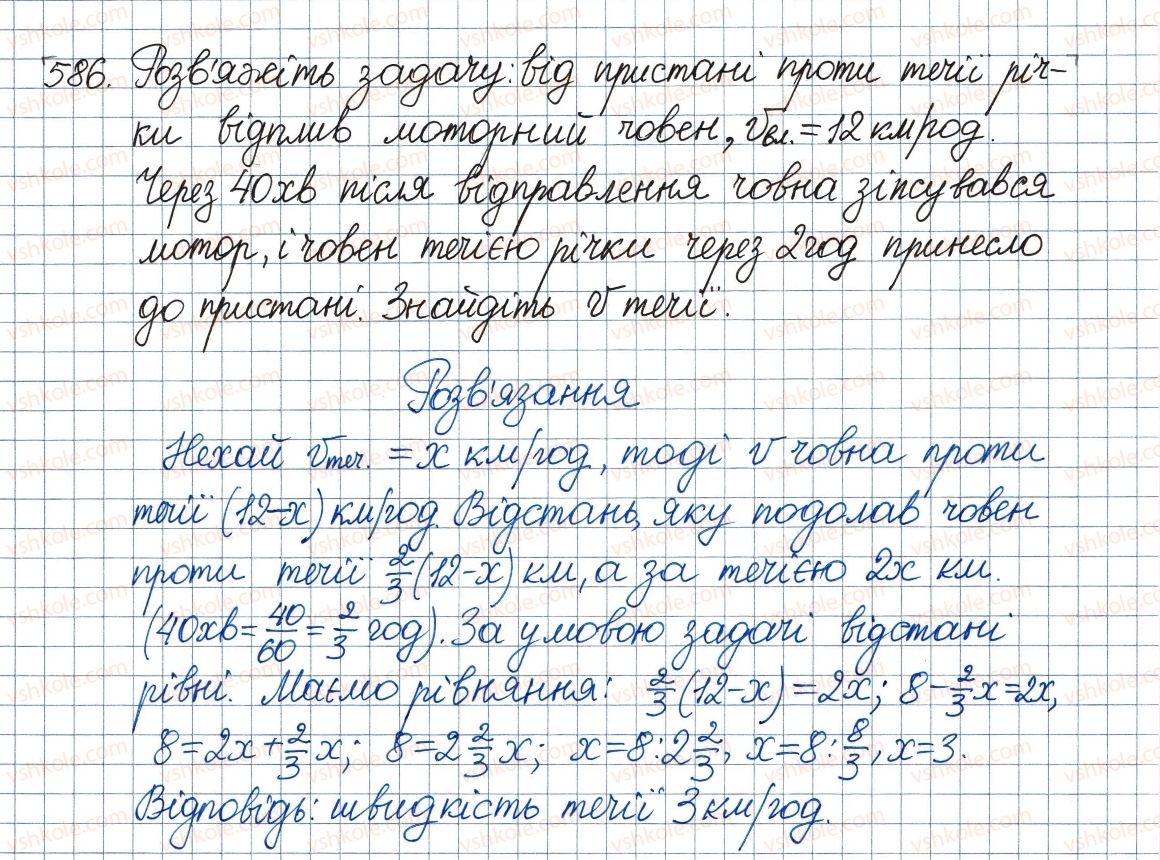 586. Розв'яжіть задачу: від пристані проти течії річ-
ки відплив моторний човен, Vвл. = 12 км/год.
Через 40хв після відправлення човна зіпсувався
мотор, і човен течією річки через 2год принесло
до пристані. Знайдіть V течії.
Розв'язання
Нехай Vтеч. = x км/год, тоді V човна проти
течії (12-x) км/год. Відстань, яку подолав човен
проти течії 2/3(12-x) км, а за течією 2x км.
(40хв = 40/60 = 2/3 год). За умовою задачі відстані
рівні. Маємо рівняння: 2/3(12-x) = 2x; 8 - 2/3x = 2x,
8 = 2x + 2/3x; 8 = 2 2/3x; x = 8 : 2 2/3; x = 8 : 8/3, x = 3.
Відповідь: швидкість течії 3 км/год.